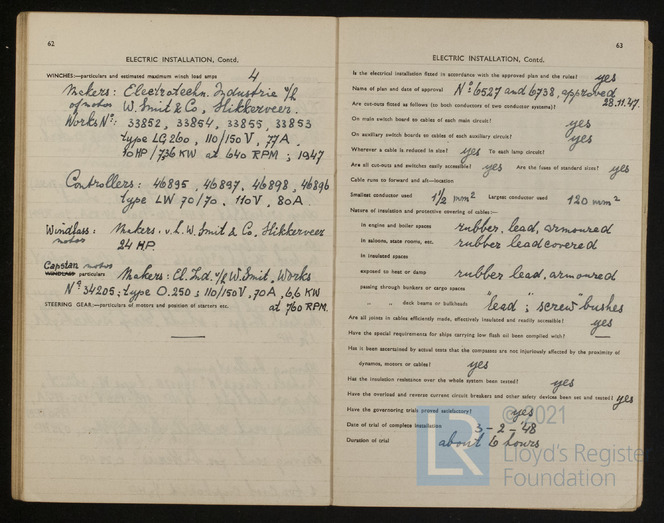 62
ELECTRIC INSTALLATION, Contd.
WINCHES:—particulars and estimated maximum winch load amps 4
Makers: Electrotechn. Industrie v/h
of motor W. Smit & Co, Slikkerveer.
Works Nº: 33852, 33854, 33855, 33853
type LG 260, 110/150 V, 77 A.
10 HP/736 KW at 640 RPM; 1947
Controllers: 46895, 46897, 46898, 46896
type LW 70/70. 110V. 80A.
Windlass: Makers: v.h. W. Smit & Co, Slikkerveer
motor 24 HP.
Capstan motor
WINDLASS particulars Makers: El. Ind. v/h W. Smit. Works
Nº 34205; type O.250; 110/150V, 70A, 6,6 KW
at 760 RPM.
STEERING GEAR:—particulars of motors and position of starters etc.
63
ELECTRIC INSTALLATION, Contd.
Is the electrical installation fitted in accordance with the approved plan and the rules? yes
Name of plan and date of approval Nº: 6527 and 6738, approved
28.11.47.
Are cut-outs fitted as follows (to both conductors of two conductor systems)?
On main switch board to cables of each main circuit? yes
On auxiliary switch boards to cables of each auxiliary circuit? yes
Wherever a cable is reduced in size? yes To each lamp circuit?
Are all cut-outs and switches easily accessible? yes Are the fuses of standard sizes? yes
Cable runs to forward and aft—location
Smallest conductor used 1½ mm² Largest conductor used 120 mm²
Nature of insulation and protective covering of cables:—
In engine and boiler spaces rubber, lead, armoured
In saloons, state rooms, etc. rubber leadcovered
In insulated spaces
exposed to heat or damp rubber lead. armoured
passing through bunkers or cargo spaces
" " deck beams or bulkheads "lead"; screw "bushes
Are all joints in cables efficiently made, effectively insulated and readily accessible? yes
Have the special requirements for ships carrying low flash oil been complied with? —
Has it been ascertained by actual tests that the compasses are not injuriously affected by the proximity of
dynamos, motors or cables? yes
Has the insulation resistance over the whole system been tested? yes
Have the overload and reverse current circuit breakers and other safety devices been set and tested? yes
Have the governing trials proved satisfactory? yes
Date of trial of complete installation 3-2-'48
Duration of trial about 6 hours
LR
©2021
Lloyd's Register
Foundation